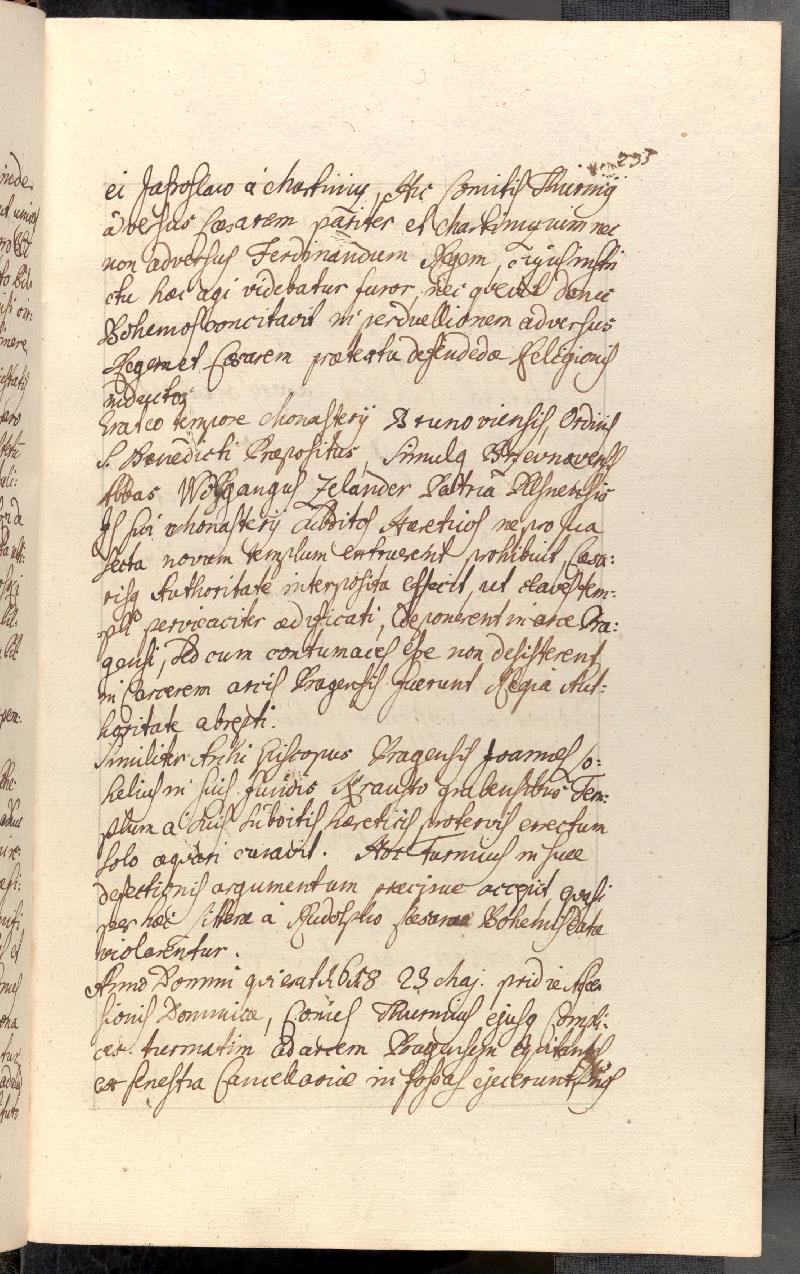 235
ei Jaroslao à Martiniz, Hic Comitis Thurnij
adversus Cæsarem pariter et Martinizium nec
non adversus Ferdinandum Regem, cujus insti
ctu hæc agi videbatur furor, nec quevit donec
Bohemos concitavit in perduellionem adversus
Regem et Cæsarem prætextu defendedæ Religionis
inductos
Erat eo tempore Monasterij Brunoviensis, Ordinis
S. Benedicti Præpositus, simulq Brzevnovensis
Abbas Wolfgangus Zelander Patriâ Plsnensis
qs sui Monasterij subditos Hæreticos ne pro sua
secta novum templum extruerent prohibuit, Cæsa:
risq Authoritate interposita effecit, ut claves tem:
pli pervicaciter ædificati, deponerent in arce Pra:
gensi, sed cum contumaces esse non desisterent
in Carcerem arcis Pragensis fuerunt Regia Aut:
horitate abrepti.
Similiter Archi Episcopus Pragensis Joannes Lo:
helius in suis fundis Krausto grabensibus Tem:
plum a suis subditis hæreticis protervis errectum
solo æquari curavit. Hoc Turnius in suæ
defectionis argumentum præcipue accepit, quasi
per hæc litteræ à Rudolpho Cæsare Bohemis data
violarentur.
Anno Domini qui erat 1618 23 Maj. pridie Ascen
sionis Dominicæ, Comes Thurnius ejusq Compli:
ces turmatim ad arcem Pragensem
ex fenestra Cancellariæ in fossas ejecerunt